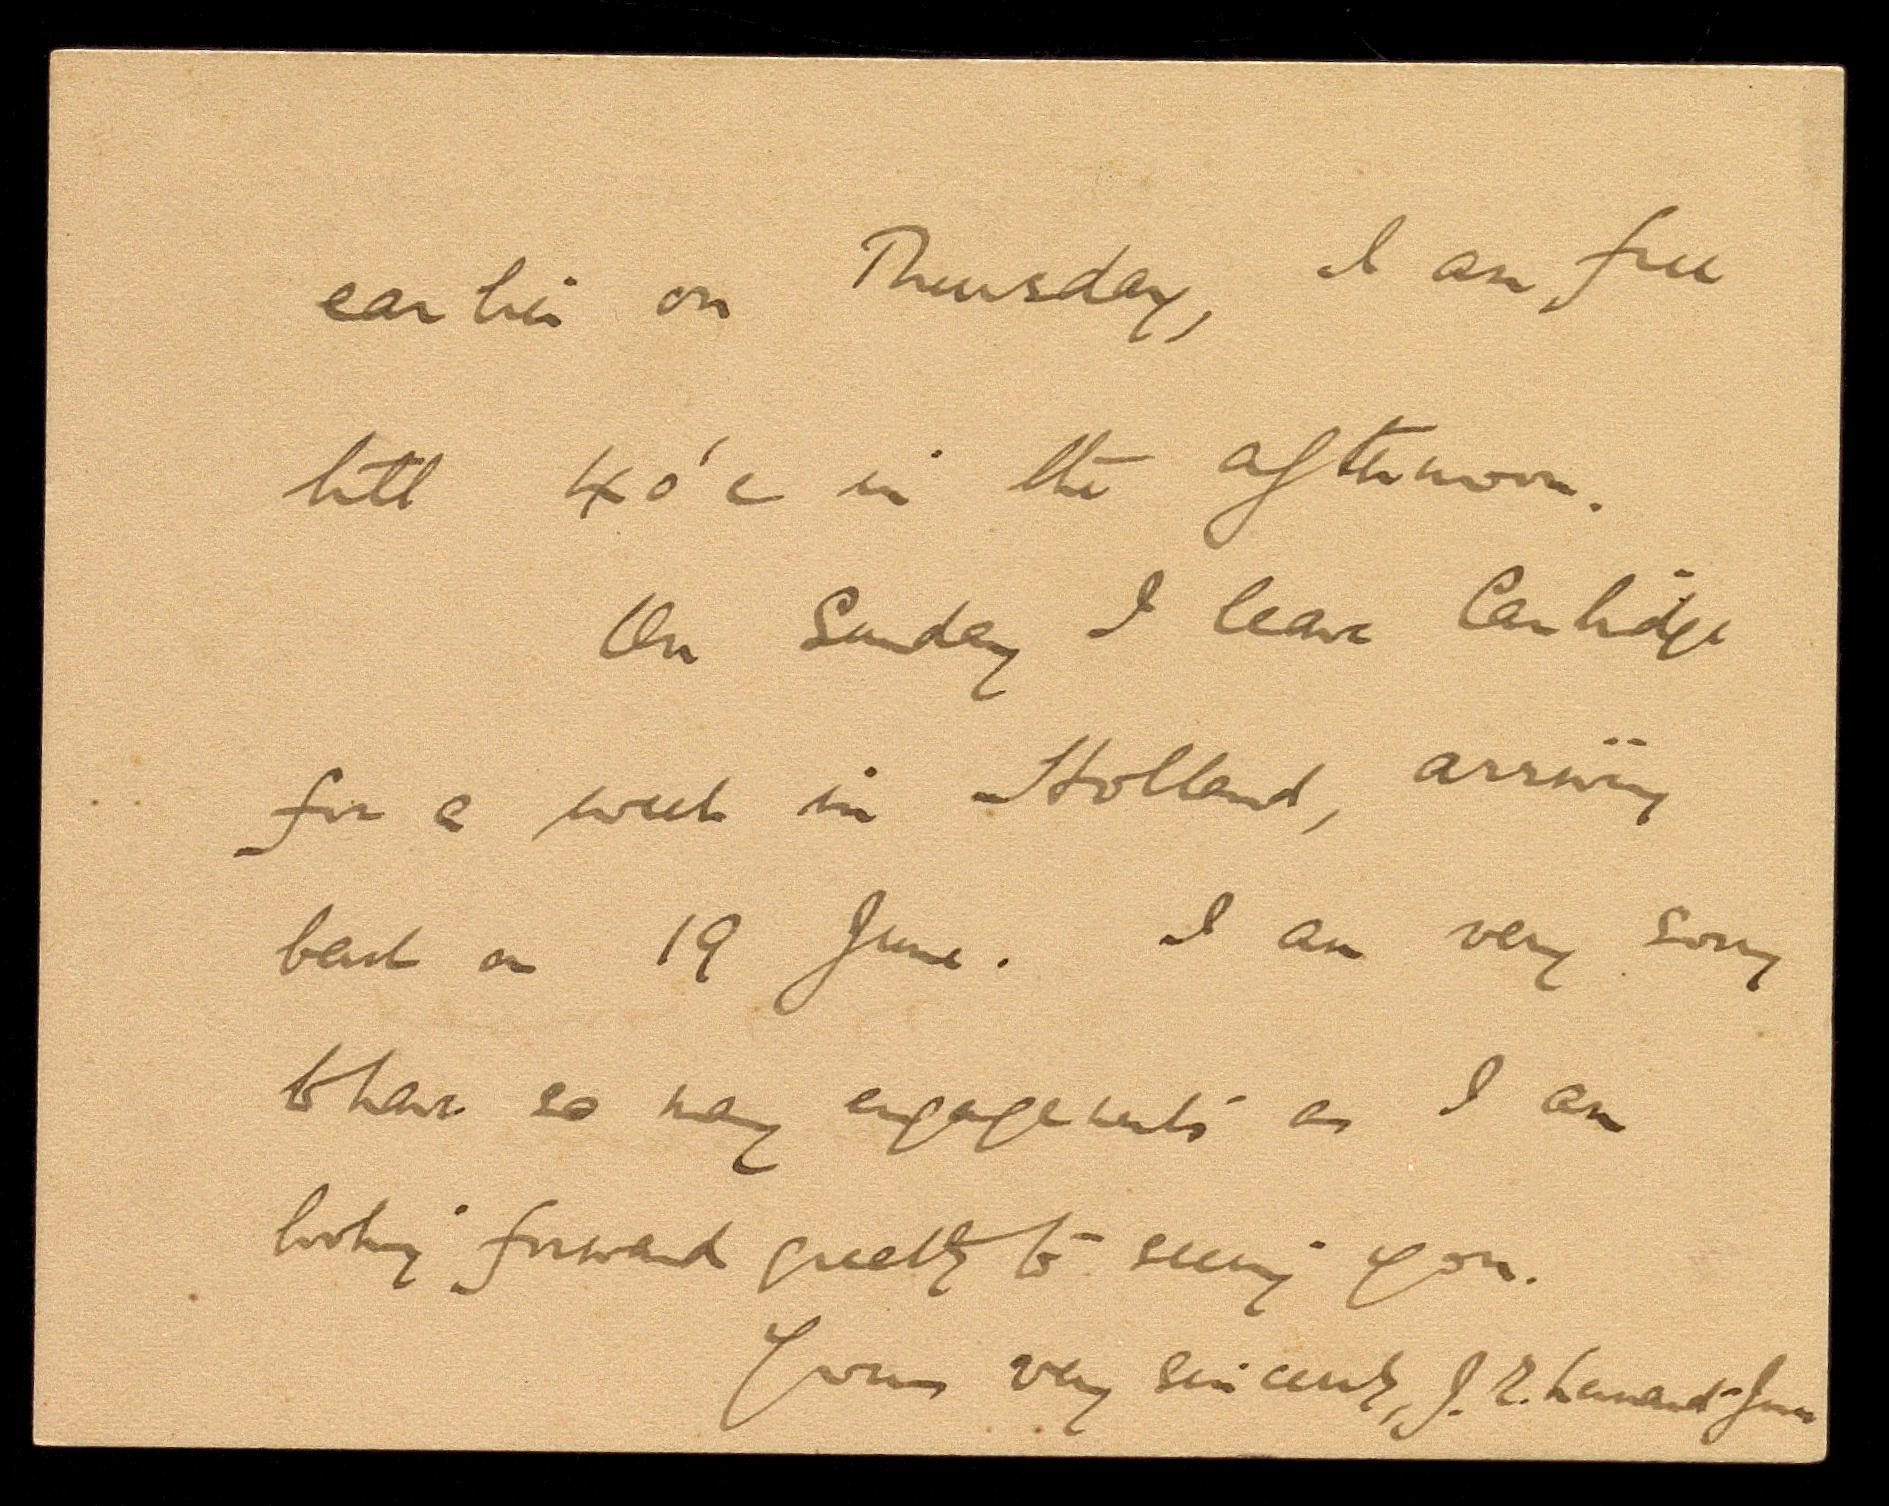 earlier on Thursday, I am free
till 4 o'c in the afternoon.
On Sunday I leave Cambridge
for a week in Holland, arriving
back on 19 June. I am very sorry
to have so many engagements as I am
looking forward greatly to seeing you.
Yours very sincerely, J. E. Lennard-Jones